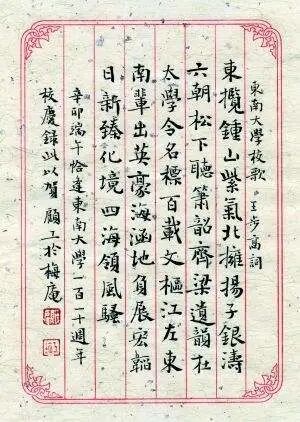 東南大學校歌。王步高詞
東攬鍾山紫氣北擁揚子銀濤
六朝松下聽簫韶齊梁遺韻在
太學令名標百載文樞江左東
南輩出英豪海涵地負展宏韜
日新臻化境四海領風騷
辛卯端午恰逢東南大學一百一十週年
校慶錄此以賀 顧工於梅庵